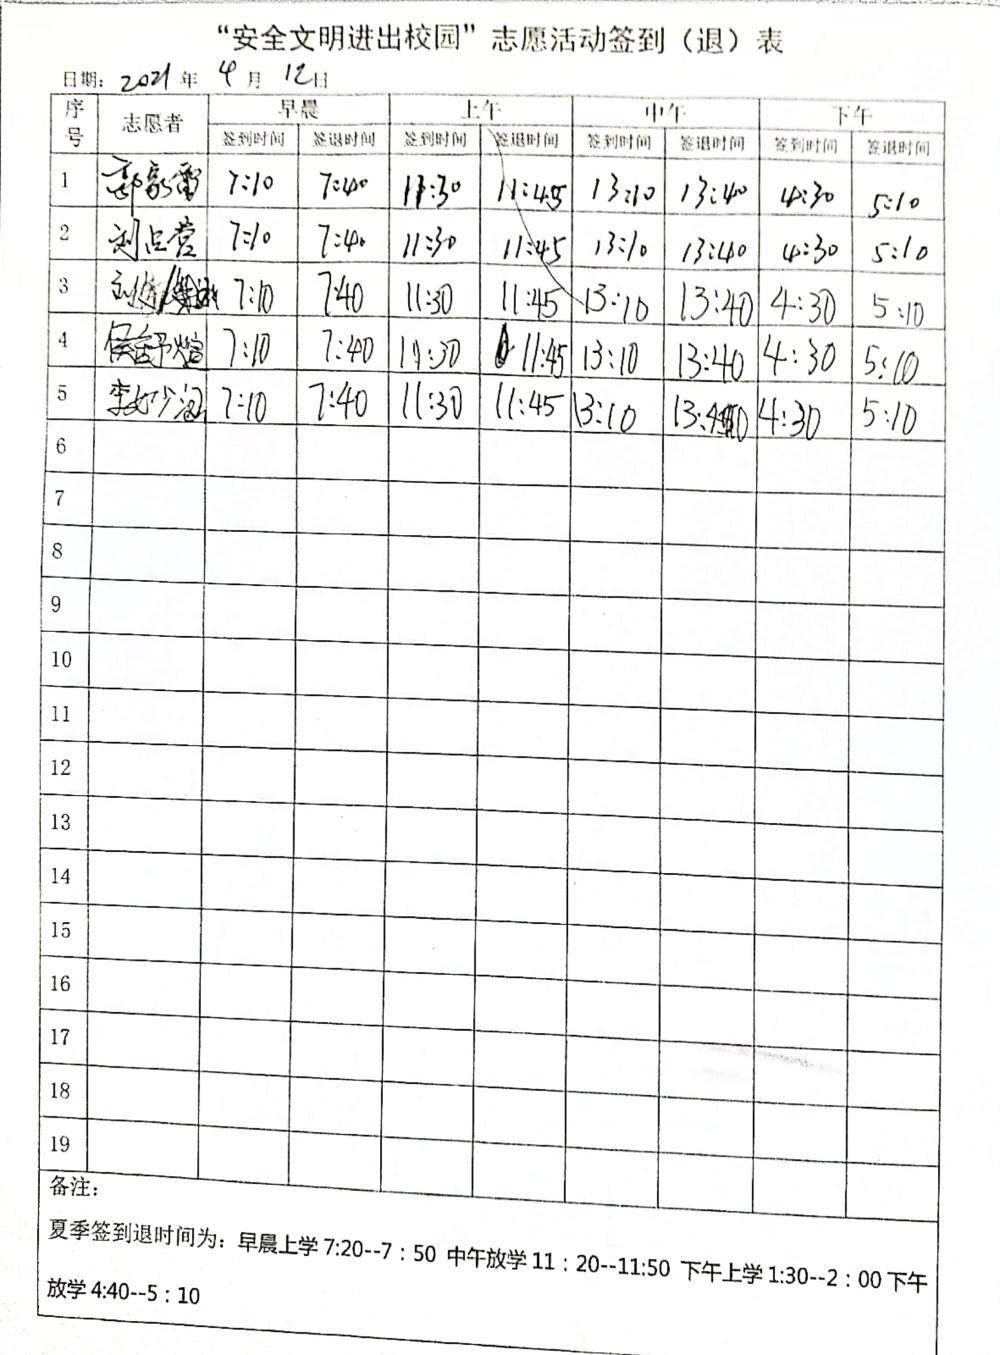 “安全文明进出校园”志愿活动签到（退）表
日期： 2021 年 4 月 12 日
序号 志愿者 早晨 上午 中午 下午
签到时间 签退时间 签到时间 签退时间 签到时间 签退时间 签到时间 签退时间
1 7:10 7:40 11:30 11:45 13:10 13:40 4:30 5:10
2 刘占营 7:10 7:40 11:30 11:45 13:10 13:40 4:30 5:10
3 7:10 7:40 11:30 11:45 13:10 13:40 4:30 5:10
4 7:10 7:40 11:30 11:45 13:10 13:40 4:30 5:10
5 7:10 7:40 11:30 11:45 13:10 13:40 4:30 5:10
6
7
8
9
10
11
12
13
14
15
16
17
18
19
备注：
夏季签到退时间为：早晨上学 7:20--7：50 中午放学 11：20--11:50 下午上学 1:30--2：00 下午
放学 4:40--5：10